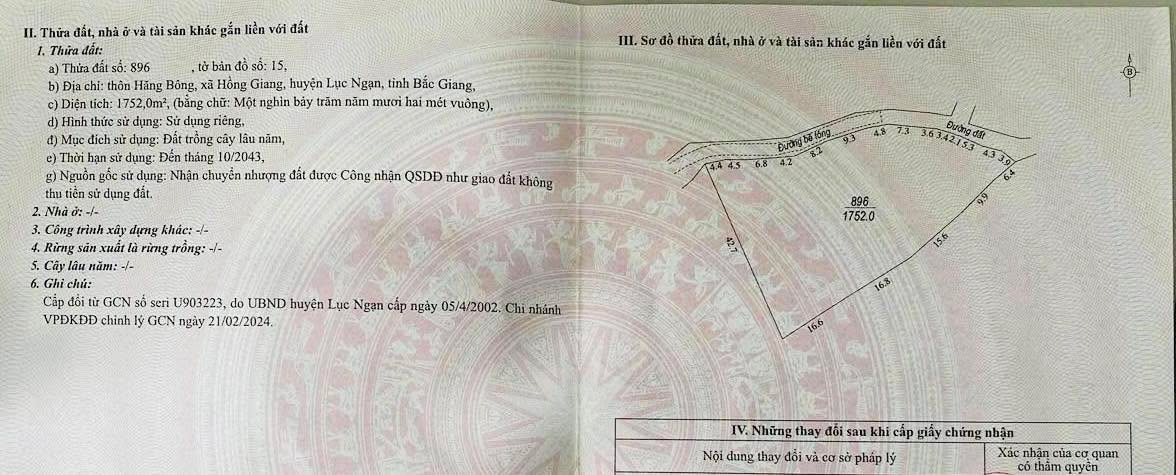 II. Thửa đất, nhà ở và tài sản khác gắn liền với đất
1. Thửa đất:
a) Thửa đất số: 896 , tờ bản đồ số: 15,
b) Địa chỉ: thôn Hăng Bông, xã Hồng Giang, huyện Lục Ngạn, tỉnh Bắc Giang,
c) Diện tích: 1752,0m², (bằng chữ: Một nghìn bảy trăm năm mươi hai mét vuông),
d) Hình thức sử dụng: Sử dụng riêng,
đ) Mục đích sử dụng: Đất trồng cây lâu năm,
e) Thời hạn sử dụng: Đến tháng 10/2043,
g) Nguồn gốc sử dụng: Nhận chuyển nhượng đất được Công nhận QSDĐ như giao đất không
thu tiền sử dụng đất.
2. Nhà ở: -/-
3. Công trình xây dựng khác: -/-
4. Rừng sản xuất là rừng trồng: -/-
5. Cây lâu năm: -/-
6. Ghi chú:
Cấp đổi từ GCN số seri U903223, do UBND huyện Lục Ngạn cấp ngày 05/4/2002. Chi nhánh
VPĐKĐĐ chỉnh lý GCN ngày 21/02/2024.
III. Sơ đồ thửa đất, nhà ở và tài sản khác gắn liền với đất
B
Đường bê tông
Đường đất
4.4 4.5 6.8 4.2 8.2 9.3 4.8 7.3 3.6 3.4 2.1 5.3 4.3 3.9
6.4
9.9
896
1752.0
15.6
42.7
16.8
16.6
IV. Những thay đổi sau khi cấp giấy chứng nhận
Nội dung thay đổi và cơ sở pháp lý
Xác nhận của cơ quan
có thẩm quyền